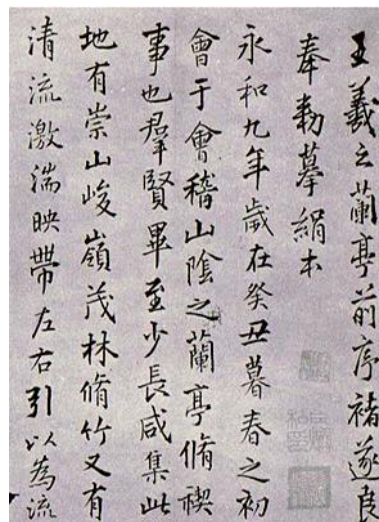 王羲之蘭亭前序褚遂良
奉勑摹絹本
永和九年歲在癸丑暮春之初
會于會稽山陰之蘭亭脩禊
事也羣賢畢至少長咸集此
地有崇山峻嶺茂林脩竹又有
清流激湍映帶左右引以為流